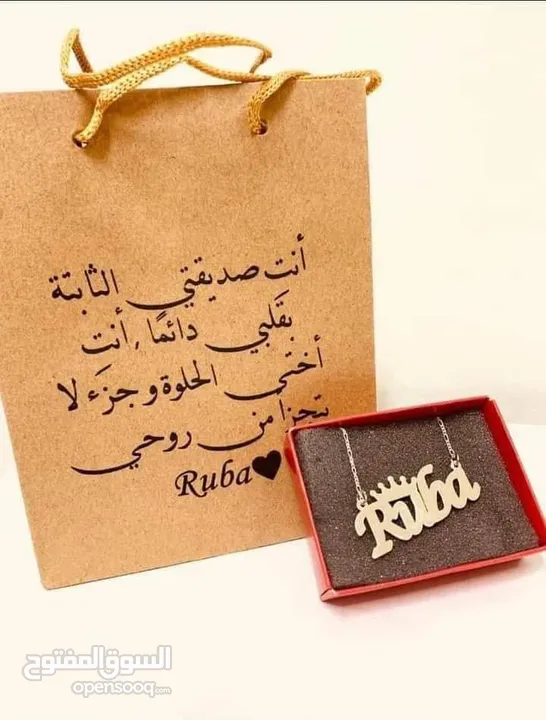 أنت صديقتي الثابتة
بقَلبي دائمًا , أنتِ
أختي الحلوة و جزء لا
يتجزأ من روحي
Ruba♥
Ruba
السوق المفتوح
opensooq.com